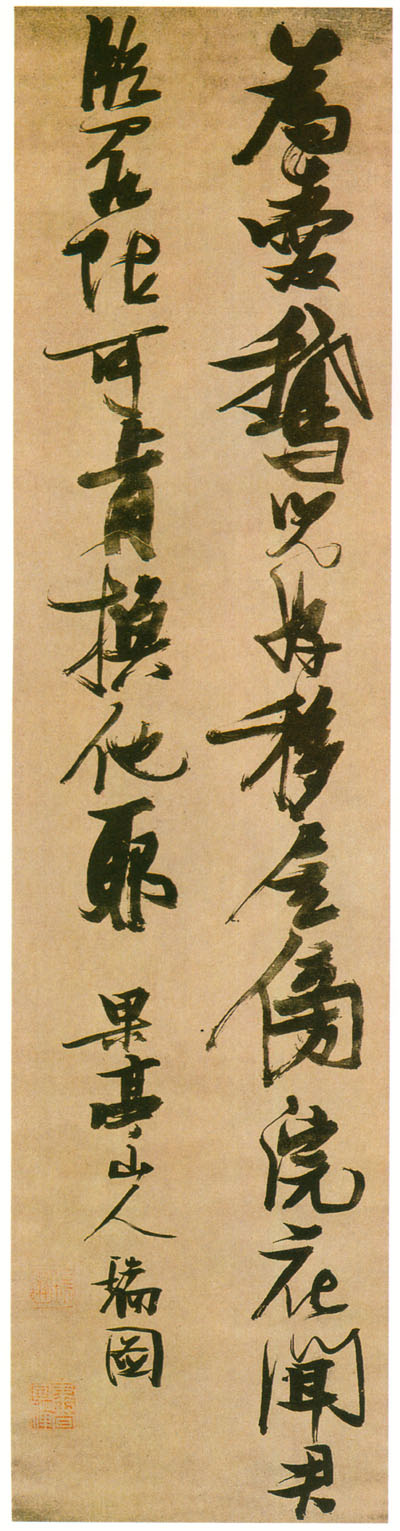 為愛鵝兒好移舍傍浣花聞君
臨眾帖可肯換他耶 果亭山人瑞圖